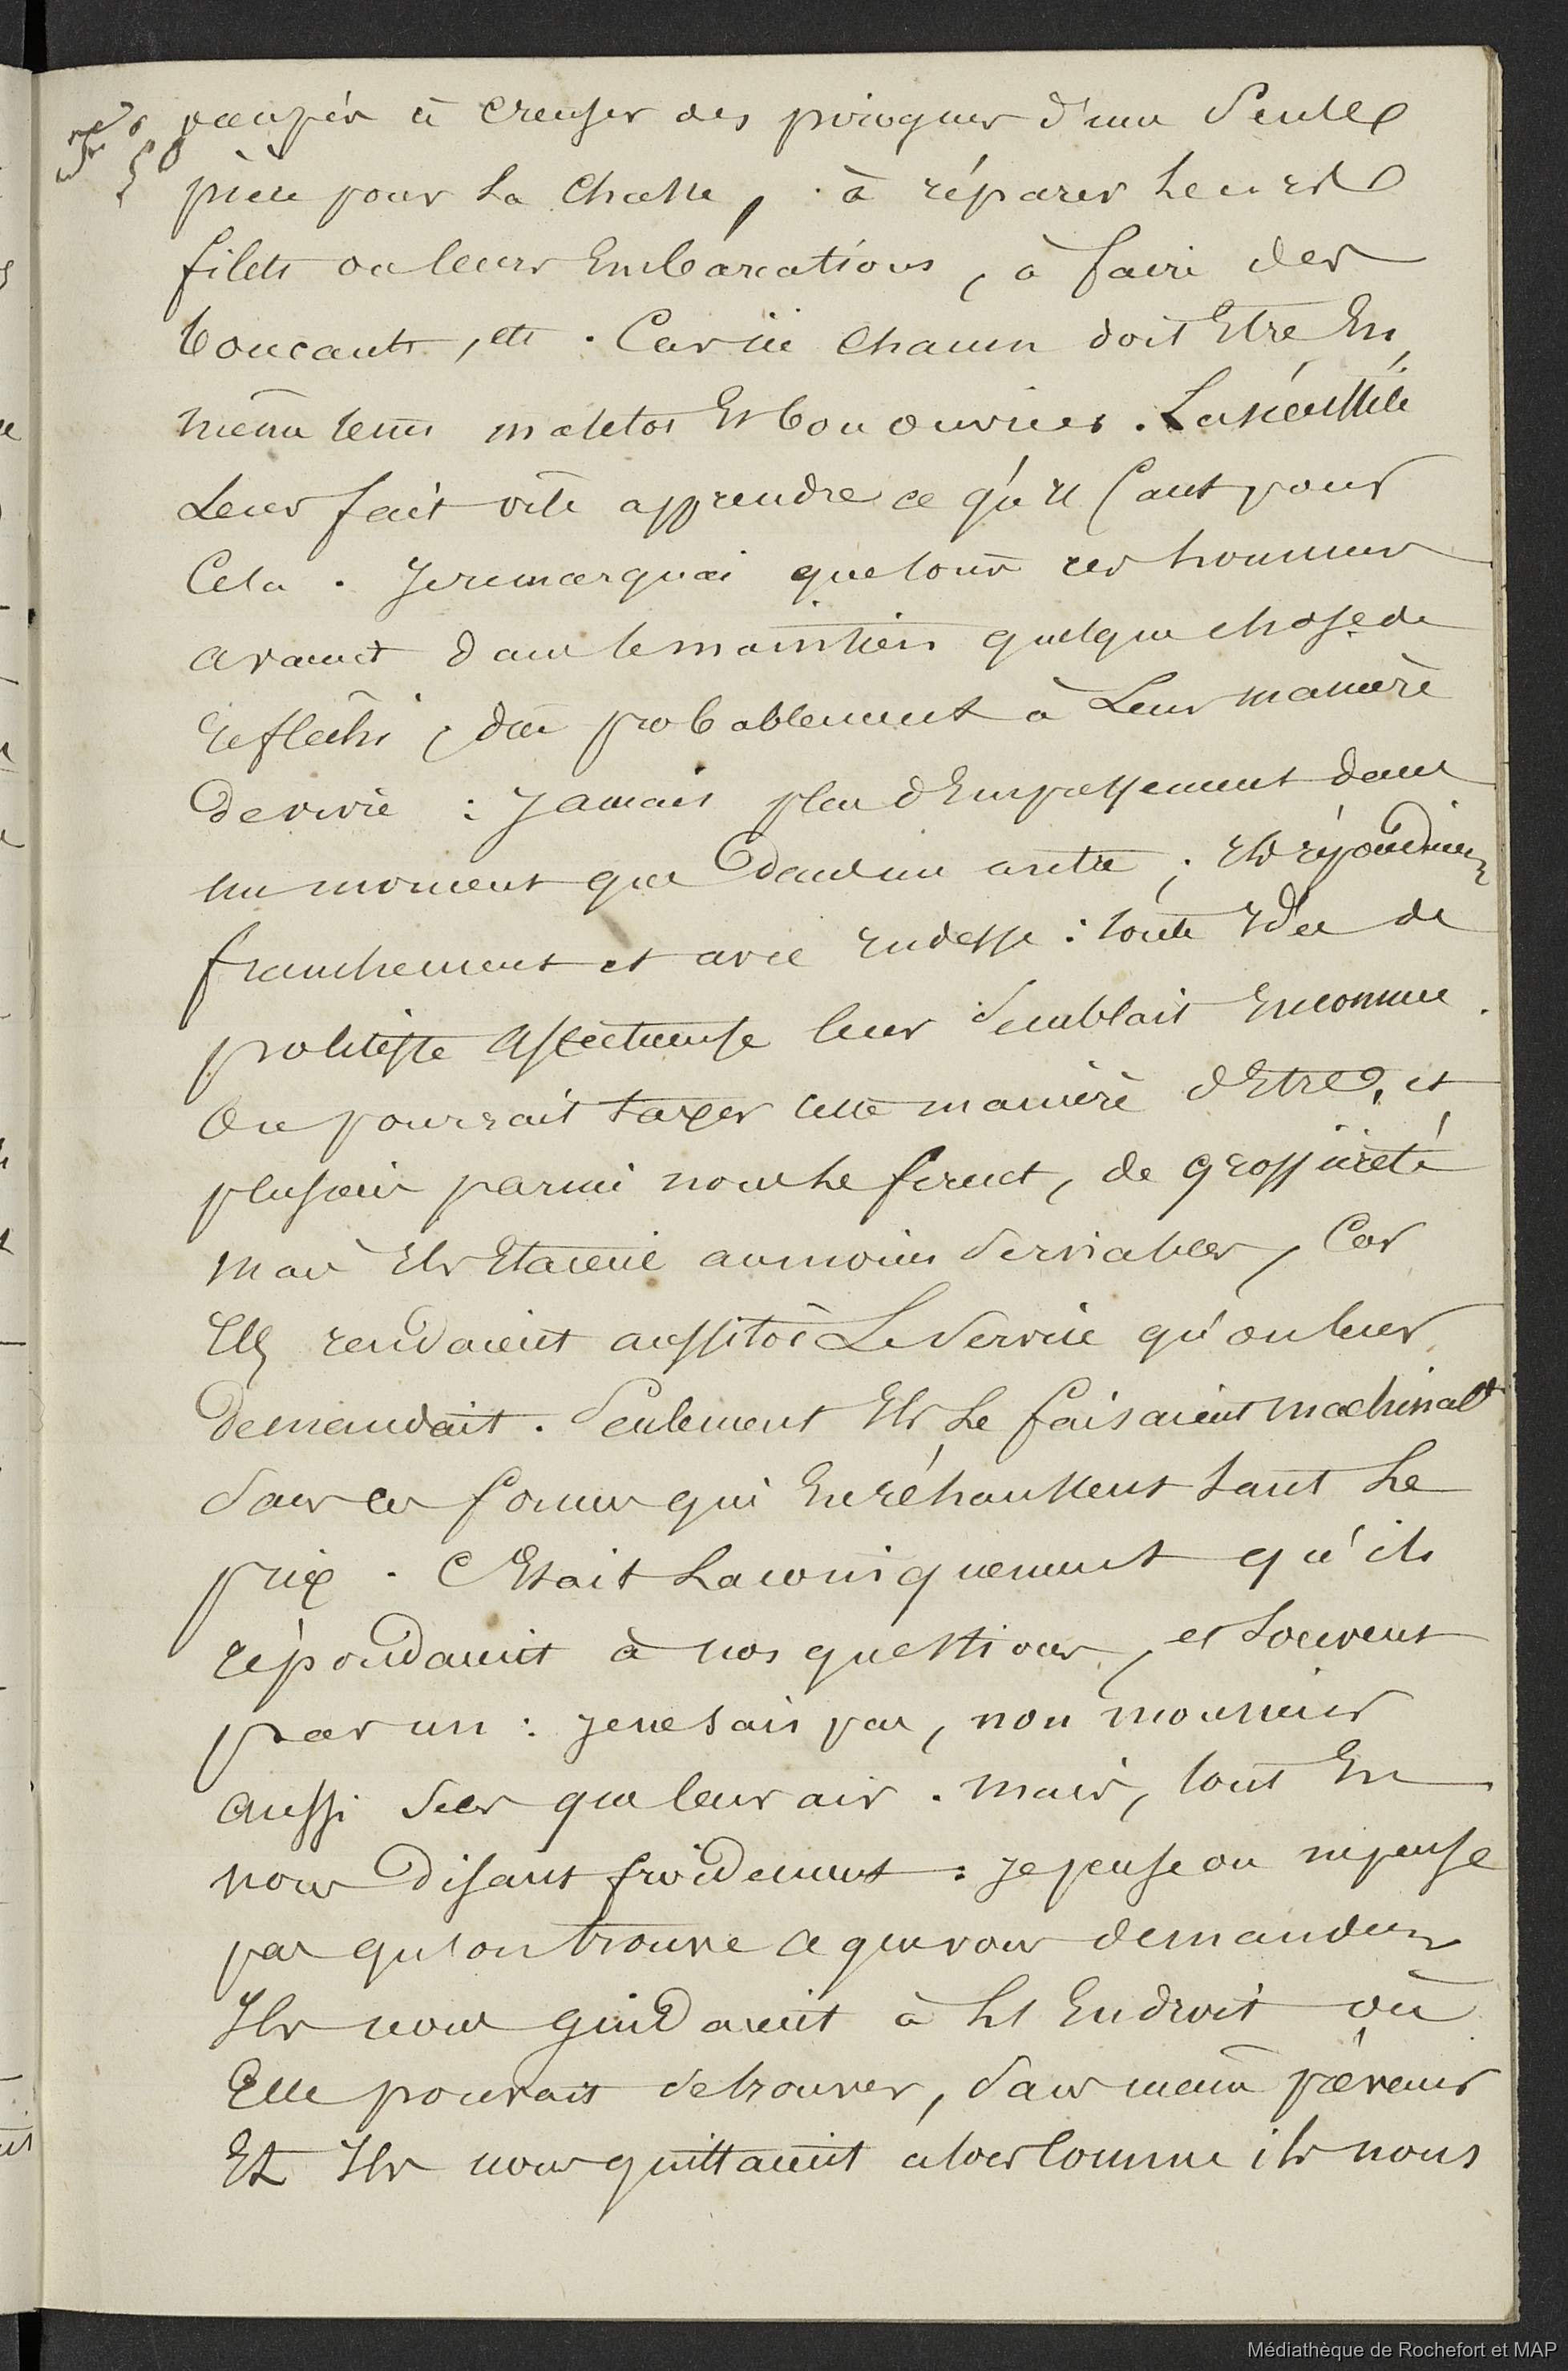 occupés à creuser des pirogues d'une seule
pièce pour la chasse, à réparer leurs
filets ou leurs Embarcations, à faire des
boucauts, etc. Car ici chacun doit Etre En
même tems matelot Et bon ouvrier. La nécessité
Leur fait vite apprendre ce qu'il faut pour
Cela. Je remarquai que tous ces hommes
avaient dans le maintien quelque chose de
réfléchi, dû probablement à Leur manière
de vivre : Jamais plus d'Empressement dans
un moment que dans un autre ; Ils répondaient
franchement et avec rudesse : toute Idée de
politesse affectueuse leur semblait Inconnue.
On pourrait taxer cette manière d'Etre, et
plusieurs parmi nous le firent, de grossièreté
mais Ils Etaient au moins serviables, Car
Ils rendaient aussitôt Le service qu'on leur
Demandait. Seulement Ils Le faisaient machinalt
sans ces formes qui En réhaussent tant Le
prix. C'Etait Laconiquement qu'ils
répondaient à nos questions, et souvent
par un : je ne sais pas, non monsieur
aussi sec que leur air. mais, tout En
nous Disant froidement : je pense ou ne pense
pas qu'on trouve ce que vous demandez
Ils nous guidaient à l'Endroit où
Elle pouvait se trouver, sans même prévenir
Et Ils nous quittaient alors comme ils nous
Médiathèque de Rochefort et MAP